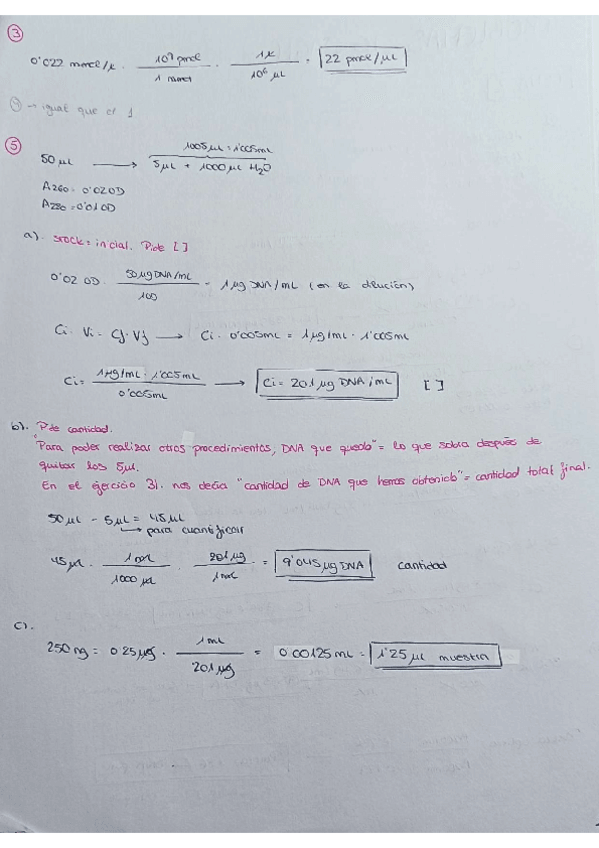 ③
0'022 mmol/L · 10⁹ pmol / 1 mmol · 1L / 10⁶ µL = 22 pmol/µL
④ → igual que el 1
⑤
50 µL → 1005µL = 1'005mL / 5µL + 1000µL H₂O
A260 = 0'02 OD
A280 = 0'01 OD
a). stock = inicial. Pide [ ]
0'02 OD · 50 µg DNA/mL / 1OD = 1 µg DNA/mL (en la dilución)
Ci · Vi = Cf · Vf → Ci · 0'005mL = 1µg/mL · 1'005mL
Ci = 1µg/mL · 1'005mL / 0'005mL → Ci = 201 µg DNA/mL [ ]
b). Pide cantidad.
"Para poder realizar otros procedimientos, DNA que quedó" = lo que sobra después de
quitar los 5µL.
En el ejercicio 3). nos decía "cantidad de DNA que hemos obtenido" = cantidad total final.
50µL - 5µL = 45µL
→ para cuantificar
45µL · 1mL / 1000 µL · 201µg / 1mL = 9'045 µg DNA cantidad
c).
250 ng = 0'25 µg · 1mL / 201 µg = 0'00125 mL = 1'25 µL muestra